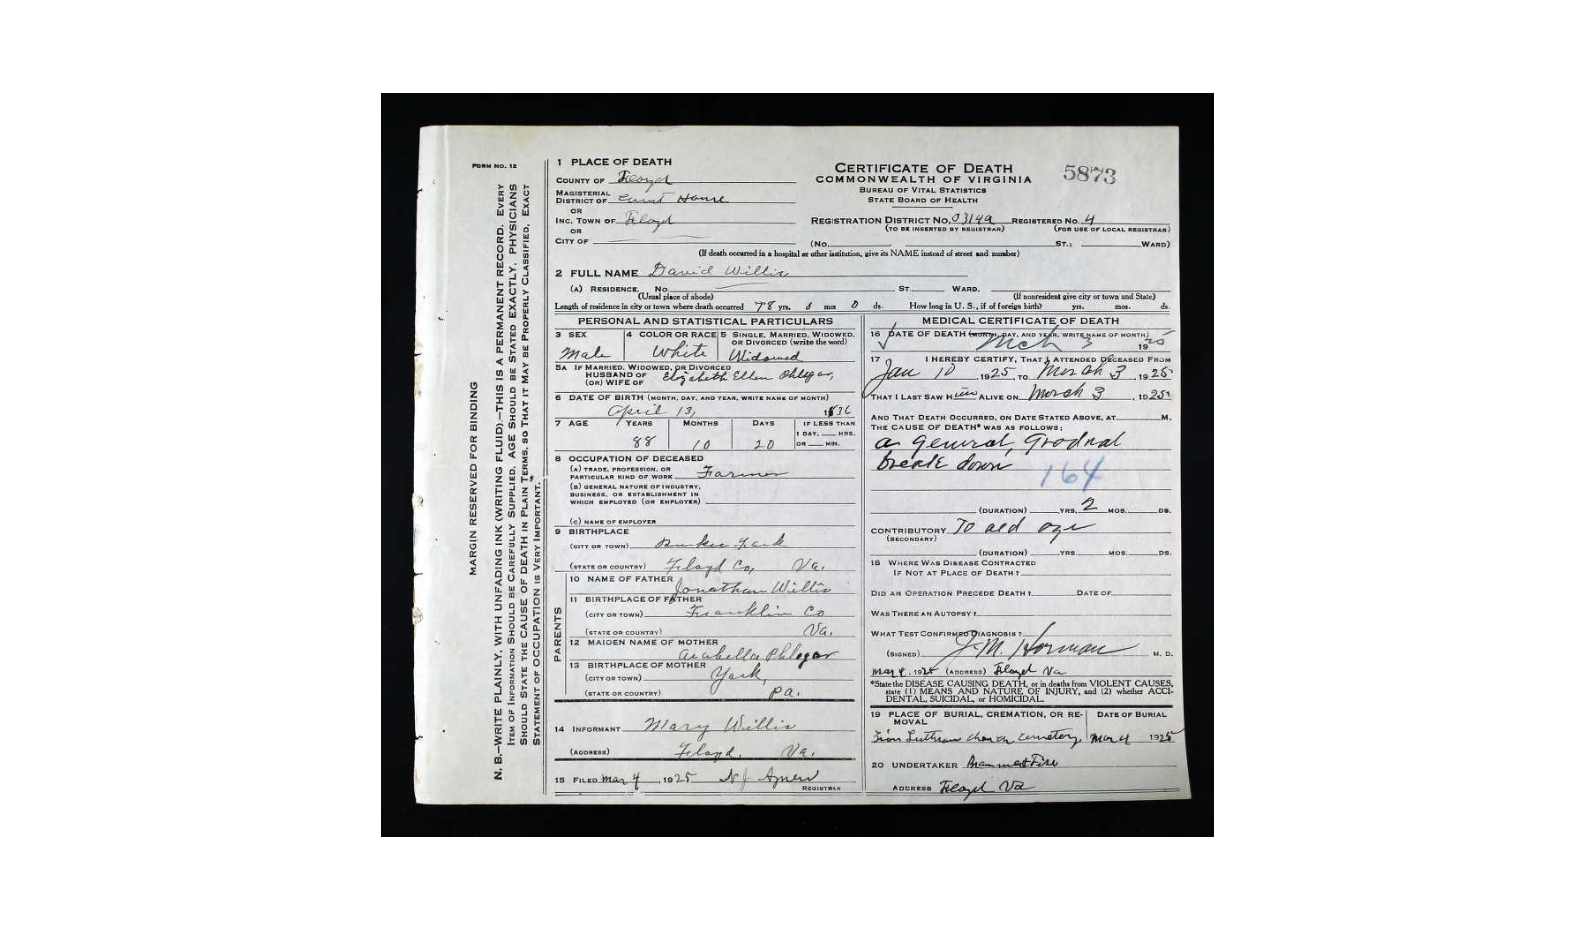 FORM NO. 12
MARGIN RESERVED FOR BINDING
N. B.—WRITE PLAINLY, WITH UNFADING INK (WRITING FLUID).—THIS IS A PERMANENT RECORD. EVERY
ITEM OF INFORMATION SHOULD BE CAREFULLY SUPPLIED. AGE SHOULD BE STATED EXACTLY. PHYSICIANS
SHOULD STATE THE CAUSE OF DEATH IN PLAIN TERMS, SO THAT IT MAY BE PROPERLY CLASSIFIED. EXACT
STATEMENT OF OCCUPATION IS VERY IMPORTANT.
1 PLACE OF DEATH
COUNTY OF Floyd
MAGISTERIAL
DISTRICT OF Court House
OR
INC. TOWN OF Floyd
OR
CITY OF
CERTIFICATE OF DEATH
COMMONWEALTH OF VIRGINIA
BUREAU OF VITAL STATISTICS
STATE BOARD OF HEALTH
5873
REGISTRATION DISTRICT NO. 0314a REGISTERED NO. 4
(TO BE INSERTED BY REGISTRAR) (FOR USE OF LOCAL REGISTRAR)
(NO. ST.; WARD)
(If death occurred in a hospital or other institution, give its NAME instead of street and number)
2 FULL NAME David Willis
(A) RESIDENCE. NO. ST. WARD.
(Usual place of abode) (If nonresident give city or town and State)
Length of residence in city or town where death occurred 78 yrs. 8 mos 0 ds. How long in U. S., if of foreign birth? yrs. mos. ds.
PERSONAL AND STATISTICAL PARTICULARS
3 SEX
Male
4 COLOR OR RACE
White
5 SINGLE, MARRIED, WIDOWED,
OR DIVORCED (write the word)
Widowed
5A IF MARRIED, WIDOWED, OR DIVORCED
HUSBAND OF Elizabeth Ellen Phlegar,
(OR) WIFE OF
6 DATE OF BIRTH (MONTH, DAY, AND YEAR, WRITE NAME OF MONTH)
April 13, 1836
7 AGE YEARS MONTHS DAYS IF LESS THAN
1 DAY, HRS.
88 10 20 OR MIN.
8 OCCUPATION OF DECEASED
(A) TRADE, PROFESSION, OR
PARTICULAR KIND OF WORK Farmer
(B) GENERAL NATURE OF INDUSTRY,
BUSINESS, OR ESTABLISHMENT IN
WHICH EMPLOYED (OR EMPLOYER)
(C) NAME OF EMPLOYER
9 BIRTHPLACE
(CITY OR TOWN)
(STATE OR COUNTRY) Floyd Co, Va.
PARENTS
10 NAME OF FATHER
Jonathan Willis
11 BIRTHPLACE OF FATHER
(CITY OR TOWN) Franklin Co
(STATE OR COUNTRY) Va.
12 MAIDEN NAME OF MOTHER
Arabella Phlegar
13 BIRTHPLACE OF MOTHER
(CITY OR TOWN) York,
(STATE OR COUNTRY) Pa.
14 INFORMANT Mary Willis
(ADDRESS) Floyd, Va.
15 FILED Mar 4, 1925 N J Agnew
REGISTRAR
MEDICAL CERTIFICATE OF DEATH
16 DATE OF DEATH (MONTH, DAY, AND YEAR, WRITE NAME OF MONTH)
Mch 3 1925
17 I HEREBY CERTIFY, THAT I ATTENDED DECEASED FROM
Jan 10, 1925, TO March 3, 1925
THAT I LAST SAW Him ALIVE ON March 3, 1925
AND THAT DEATH OCCURRED, ON DATE STATED ABOVE, AT M.
THE CAUSE OF DEATH* WAS AS FOLLOWS:
a general, Gradual
break down
164
(DURATION) YRS. 2 MOS. DS.
CONTRIBUTORY To old age
(SECONDARY)
(DURATION) YRS. MOS. DS.
18 WHERE WAS DISEASE CONTRACTED
IF NOT AT PLACE OF DEATH?
DID AN OPERATION PRECEDE DEATH? DATE OF
WAS THERE AN AUTOPSY?
WHAT TEST CONFIRMED DIAGNOSIS?
(SIGNED) J.M. Harman M. D.
Mar 4, 1925 (ADDRESS) Floyd Va
*State the DISEASE CAUSING DEATH, or in deaths from VIOLENT CAUSES,
state (1) MEANS AND NATURE OF INJURY, and (2) whether ACCI-
DENTAL, SUICIDAL, or HOMICIDAL.
19 PLACE OF BURIAL, CREMATION, OR RE-
MOVAL
DATE OF BURIAL
Zion Luthran church cemetery Mar 4 1925
20 UNDERTAKER
ADDRESS Floyd Va